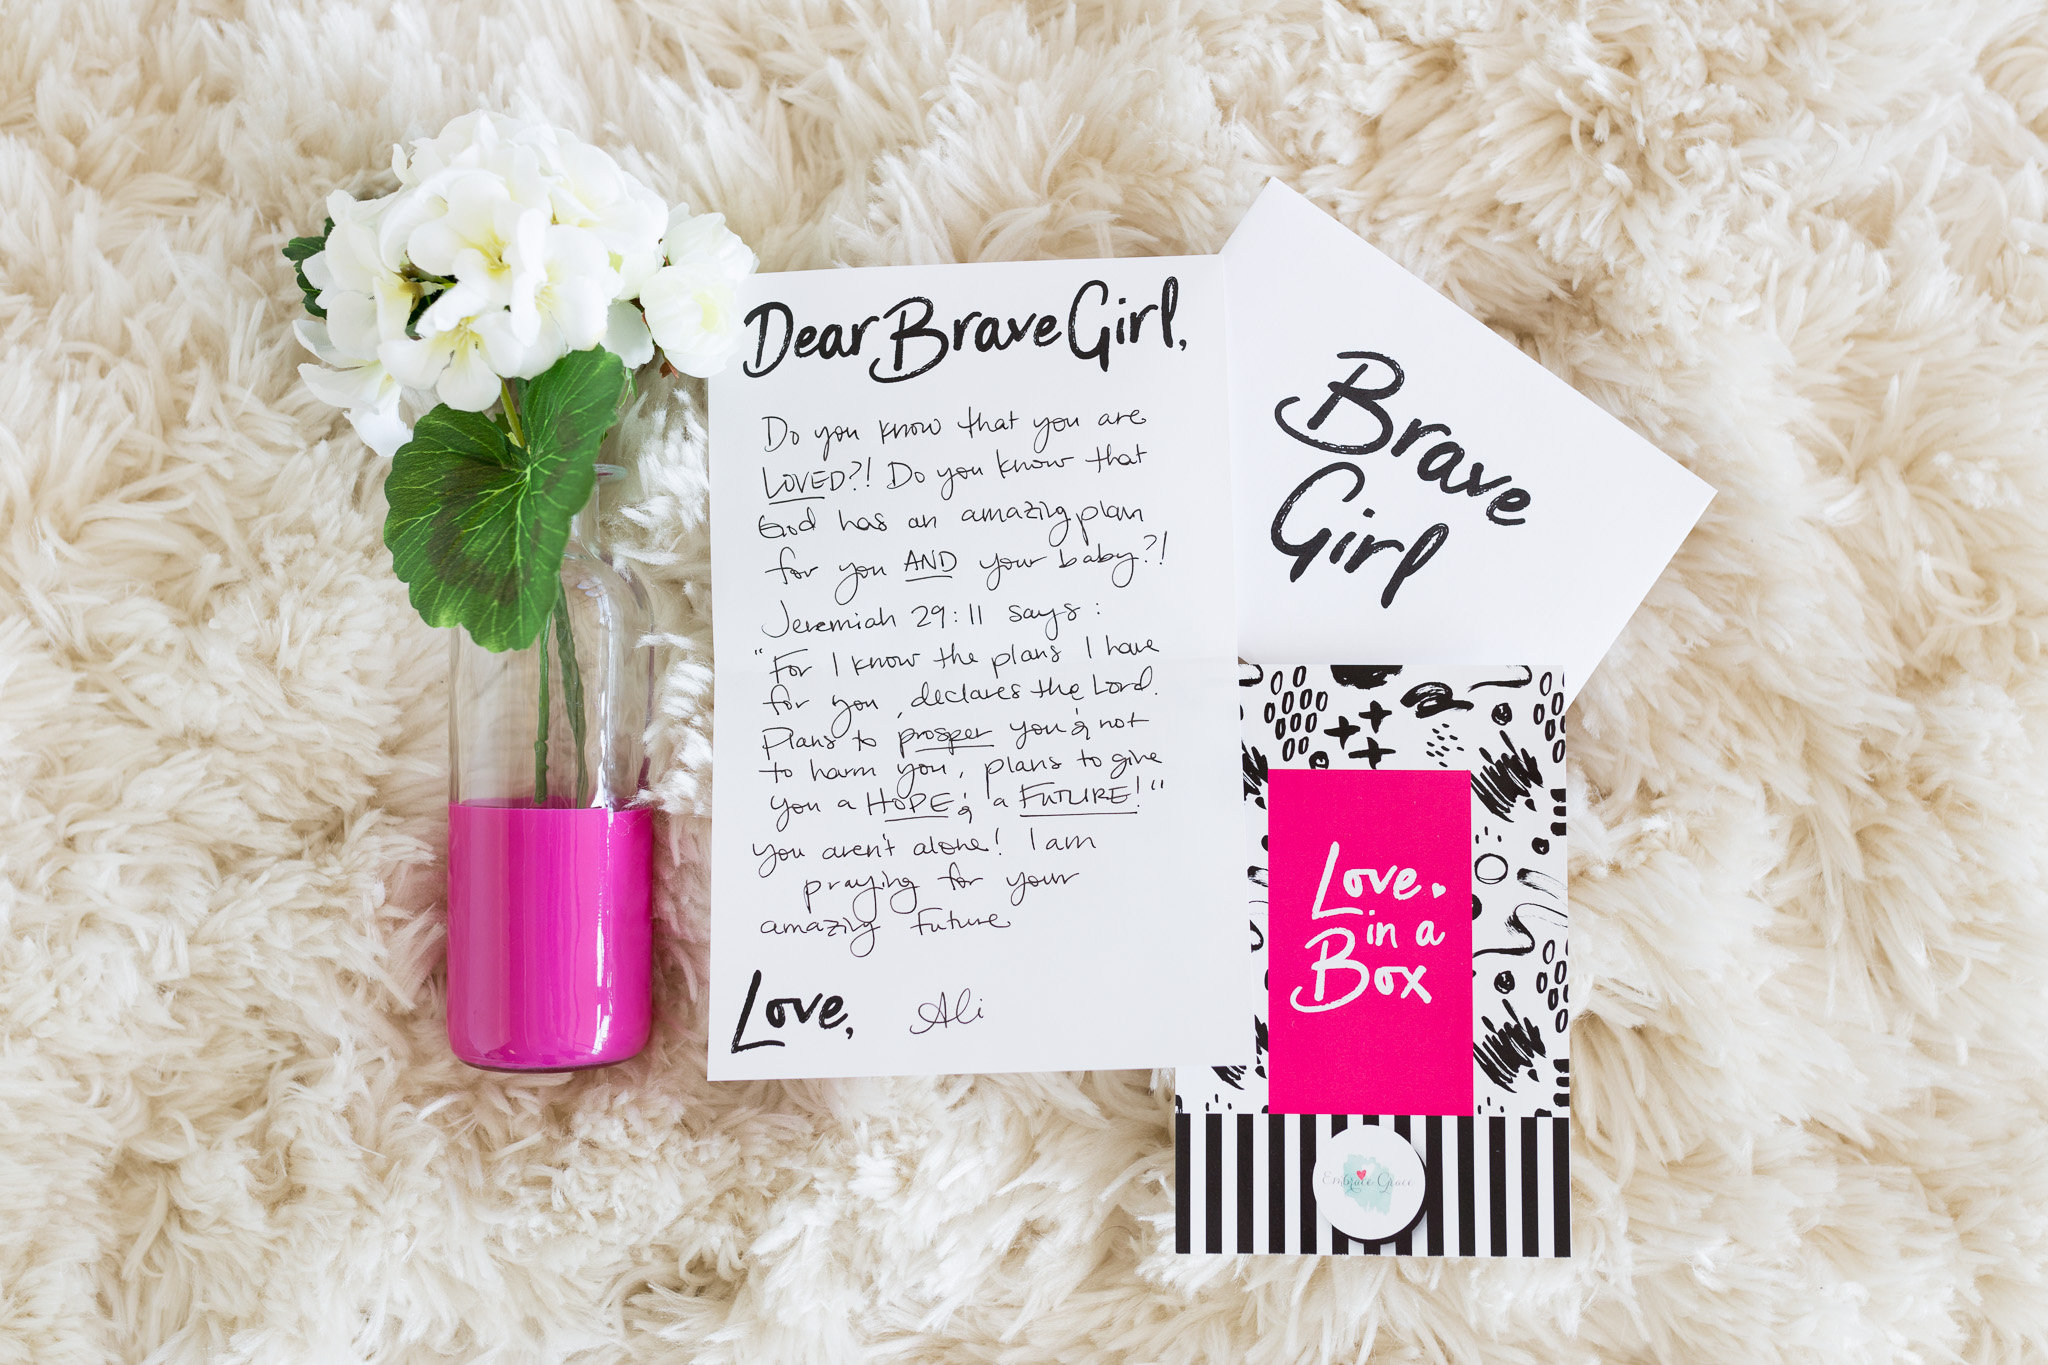 Dear Brave Girl,
Do you know that you are
LOVED?! Do you know that
God has an amazing plan
for you AND your baby?!
Jeremiah 29:11 says:
"For I know the plans I have
for you, declares the Lord.
Plans to prosper you & not
to harm you, plans to give
you a HOPE & a FUTURE!"
you aren't alone! I am
praying for your
amazing future
Love, Ali
Brave
Girl
Love
in a
Box
Embrace Grace